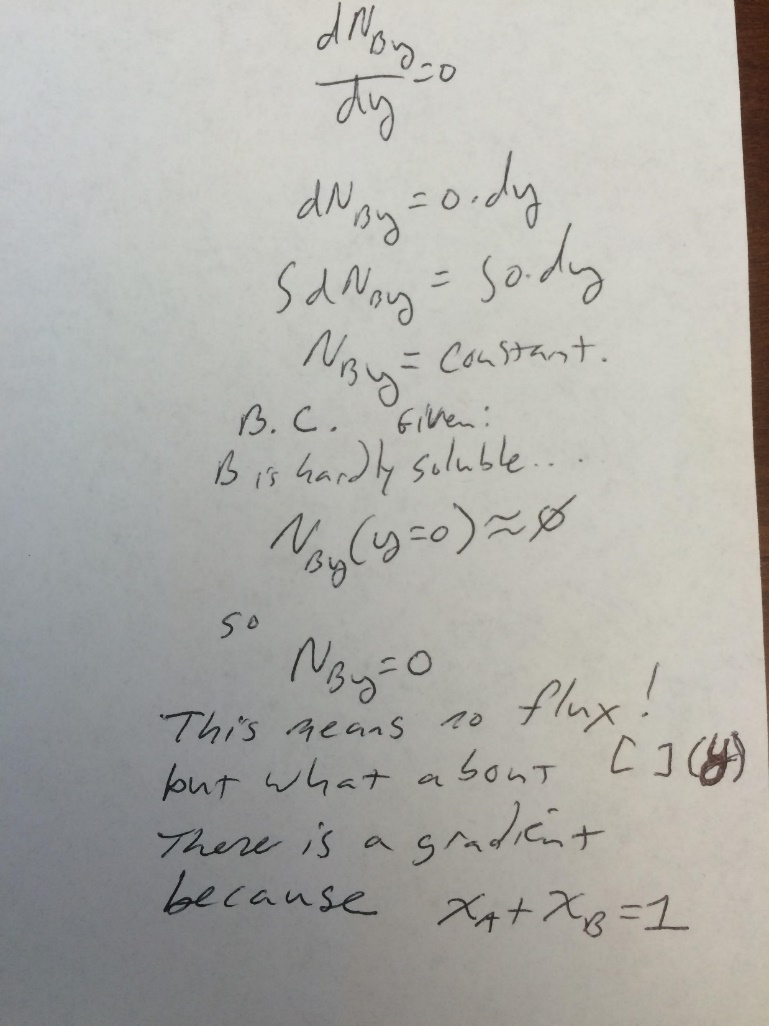 dN_By/dy = 0
dN_By = 0 · dy
∫dN_By = ∫0 · dy
N_By = constant.
B.C. Given:
B is hardly soluble....
N_By(y=0) ≈ ∅
so
N_By = 0
This means no flux!
but what about [ ](y)
There is a gradient
because x_A + x_B = 1